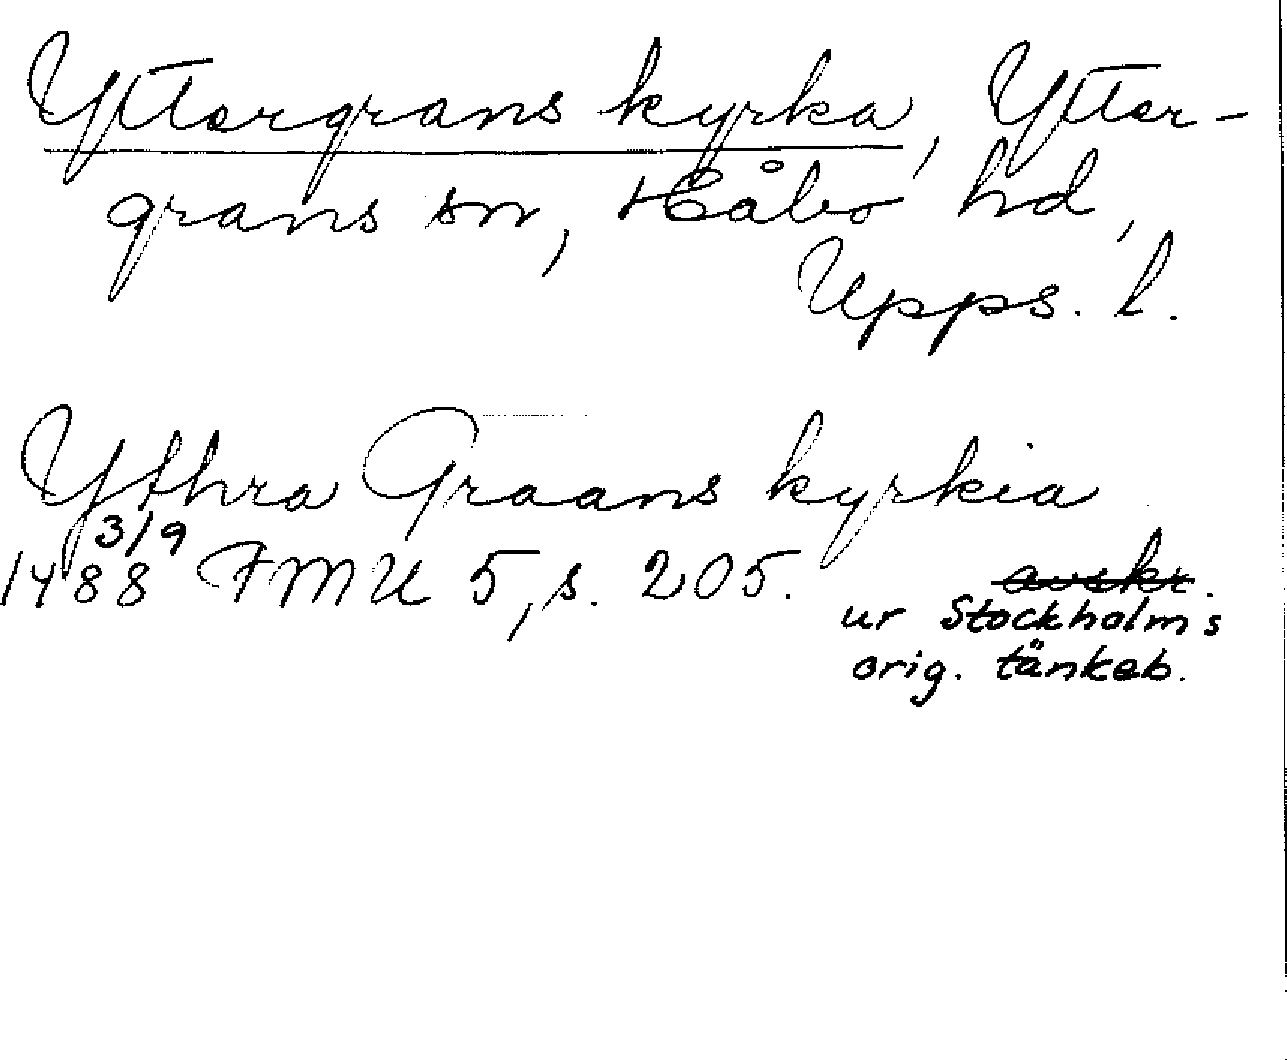 Yttergrans kyrka, Ytter-
grans sn, Håbo hd,
Upps. l.
Ythra Graans kyrkia
1488 3/9 FMU 5, s. 205. avskr.
ur Stockholms
orig. tänkeb.